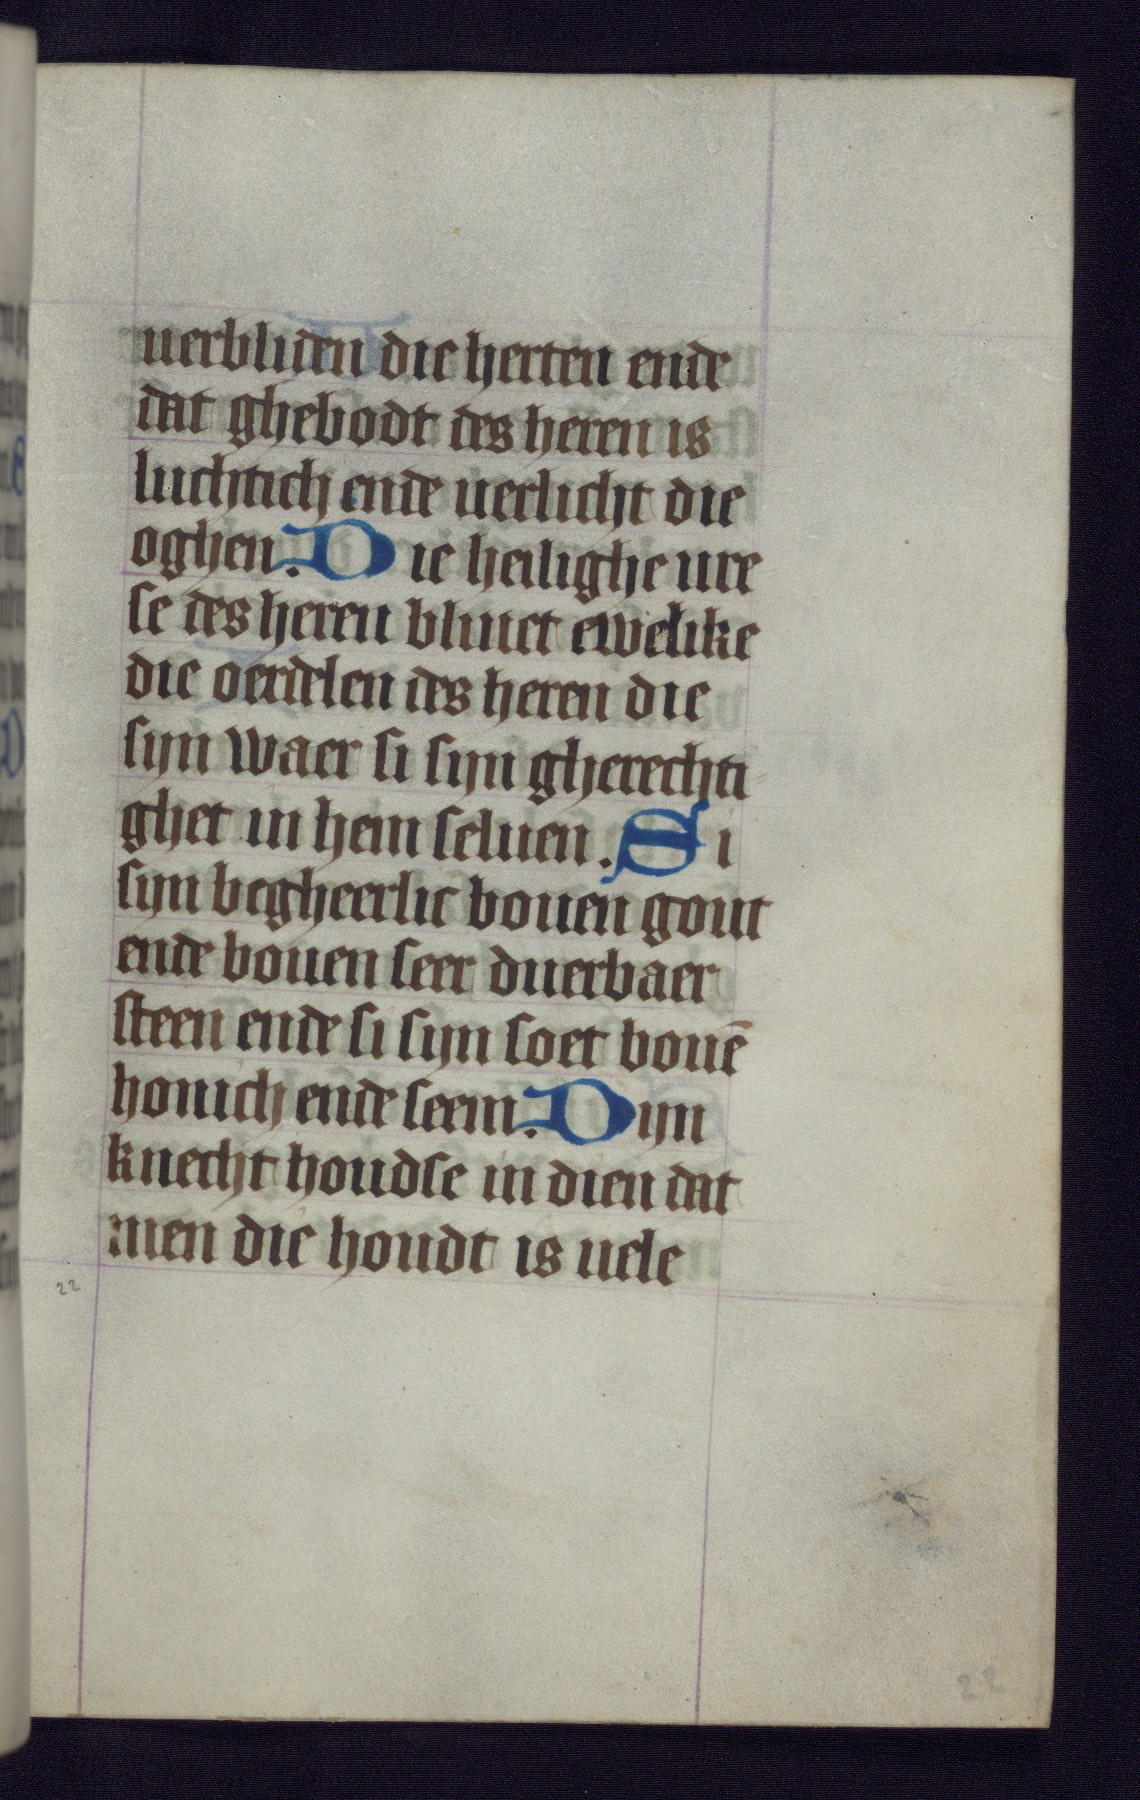 uerbliden die herten ende
dat ghebodt des heren is
luchtich ende uerlicht die
oghen. Die heilighe ure
se des heren bliuet ewelike
die oerdelen des heren die
sijn waer si sijn gherechti
ghet in hem seluen. Si
sijn begheerlic bouen gout
ende bouen seer duerbaer
steen ende si sijn soet bouē
honich ende seem. Dijn
knecht houdse in dien dat
men die houdt is uele
22
22